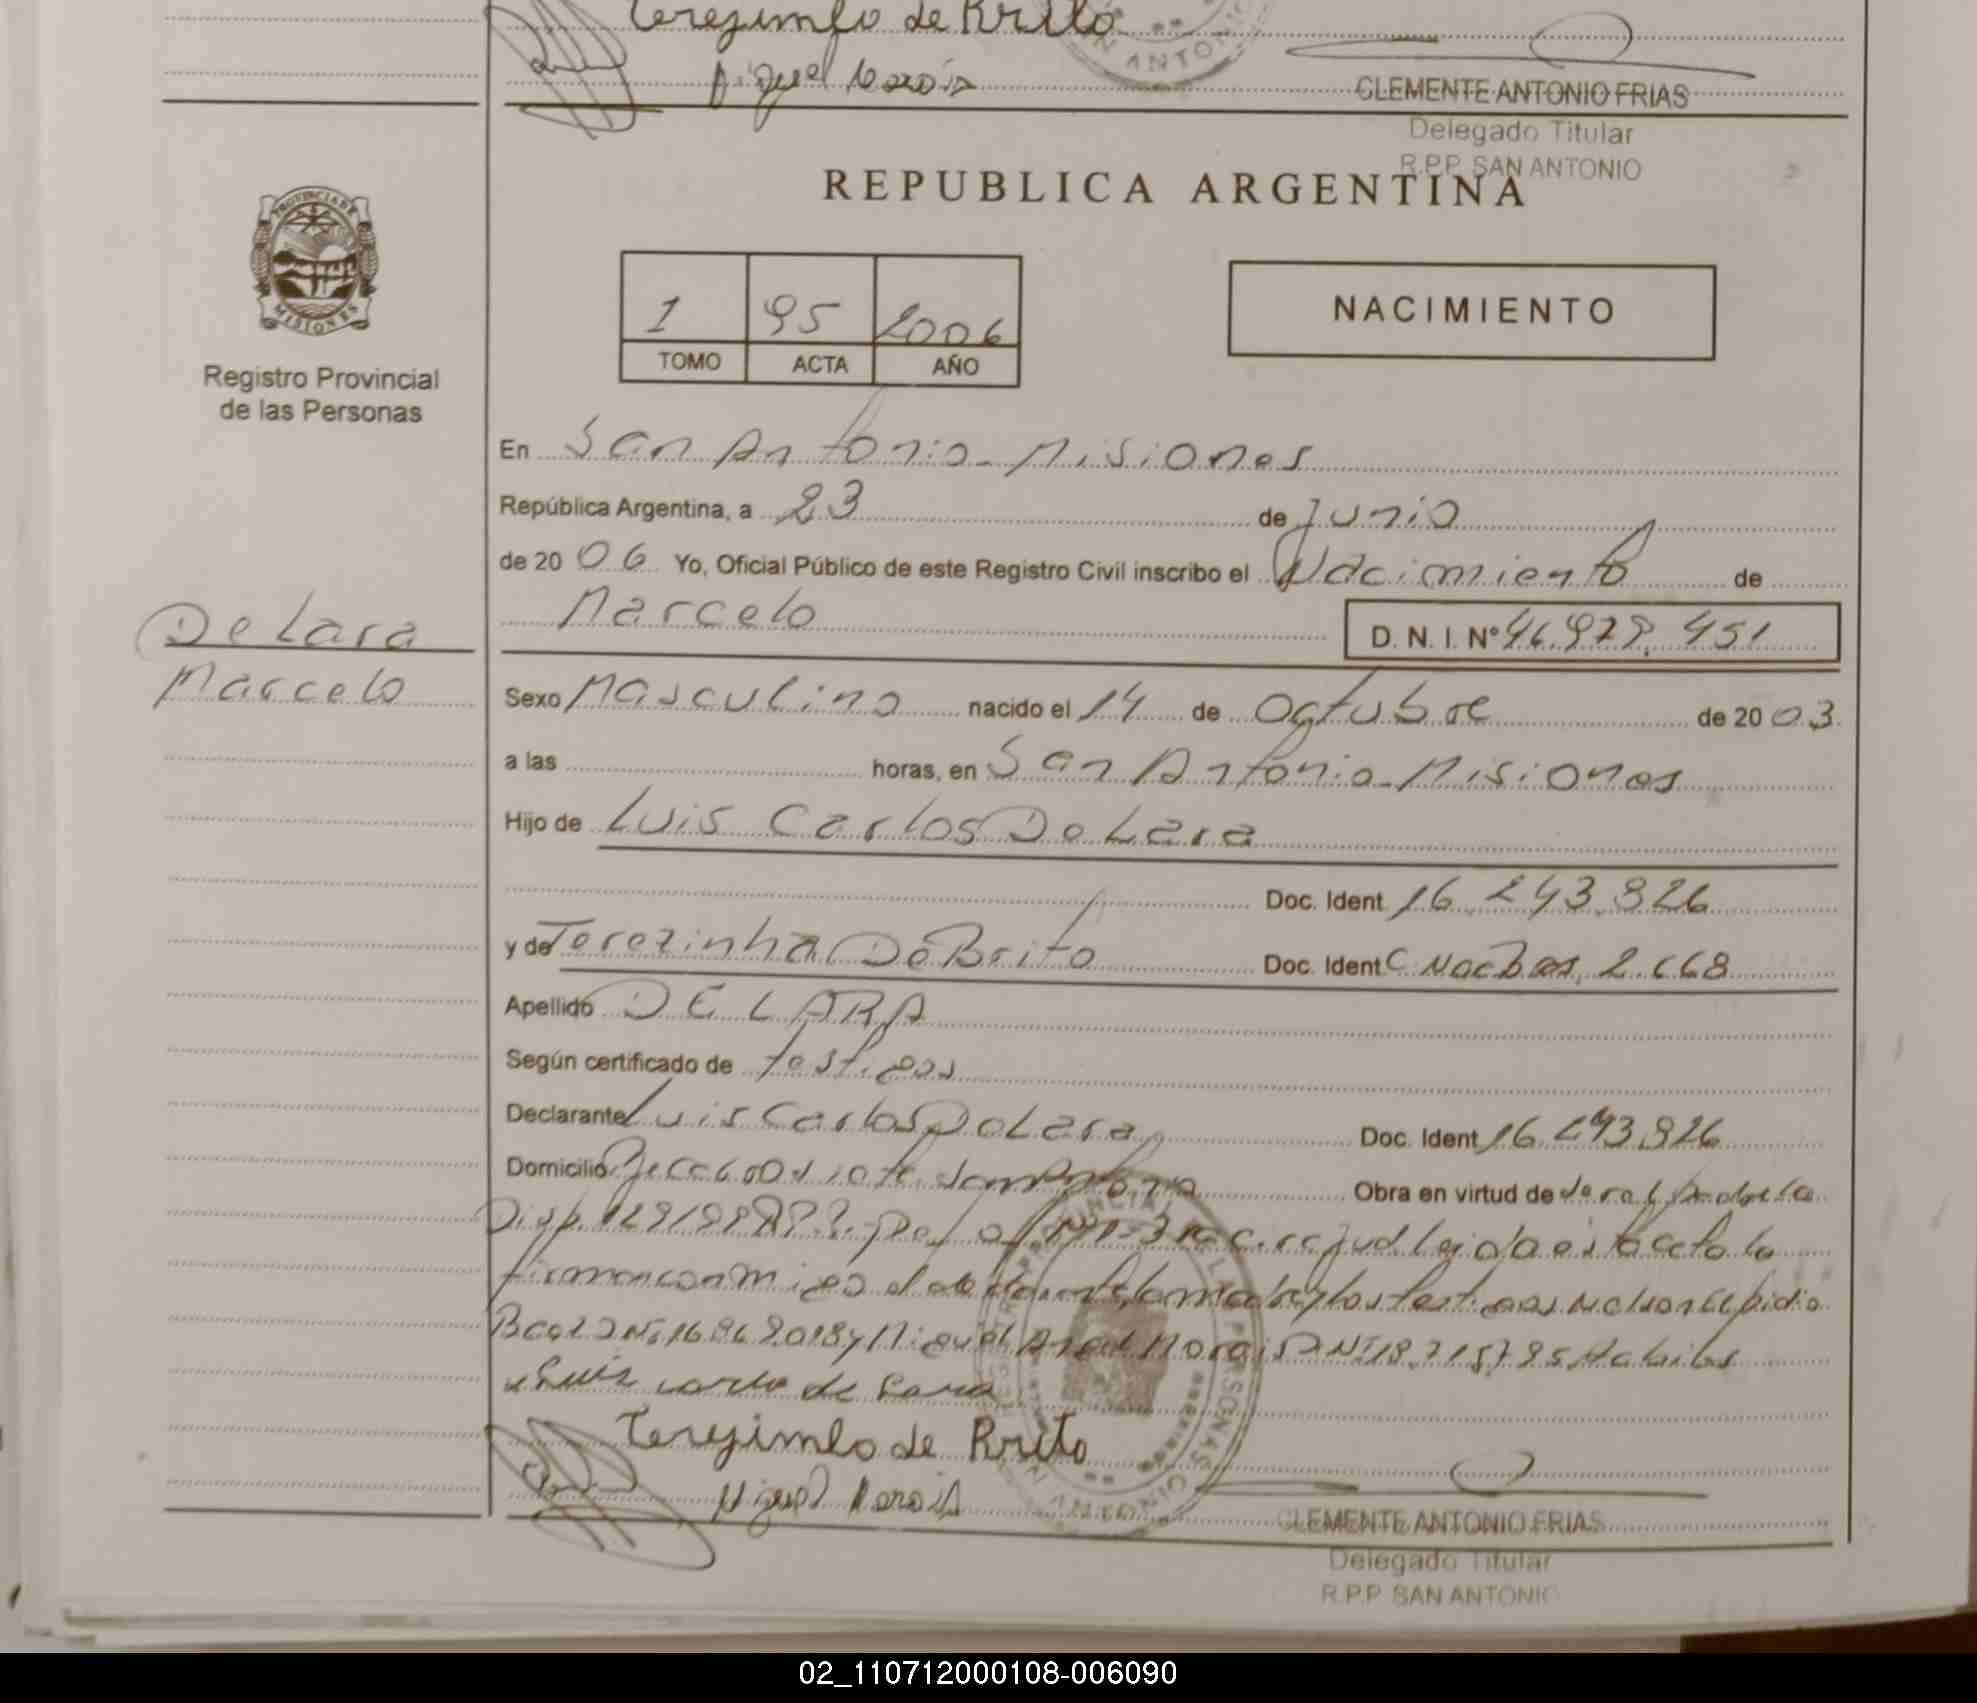 Terezimlo de Rrito
Miguel Morais
SAN ANTONIO
CLEMENTE ANTONIO FRIAS
Delegado Titular
R.P.P. SAN ANTONIO
REPUBLICA ARGENTINA
PROVINCIA DE
MISIONES
Registro Provincial
de las Personas
1 95 2006
TOMO ACTA AÑO
NACIMIENTO
En San Antonio - Misiones
República Argentina, a 23 de Junio
de 2006 Yo, Oficial Público de este Registro Civil inscribo el Nacimiento de
Marcelo D. N. I. Nº 46.979.451
De Lara
Marcelo
Sexo Masculino nacido el 14 de Octubre de 2003
a las horas, en San Antonio - Misiones
Hijo de Luis Carlos De Lara
Doc. Ident 16.243.826
y de Terezinha De Brito Doc. Ident C. Nac Bras. 2.668
Apellido DE LARA
Según certificado de testigos
Declarante Luis Carlos De Lara Doc. Ident 16.243.826
Domicilio San Antonio Obra en virtud de
Disp. Leida esta acta la
firman con migo el declarante la madre y los testigos
DNi 16.969.018 y Miguel Angel Morais DNi 18.715.795 Habiles
Luis carlo de Lara
Terezimlo de Rrito
Miguel Morais
CLEMENTE ANTONIO FRIAS
Delegado Titular
R.P.P SAN ANTONIO
02_110712000108-006090